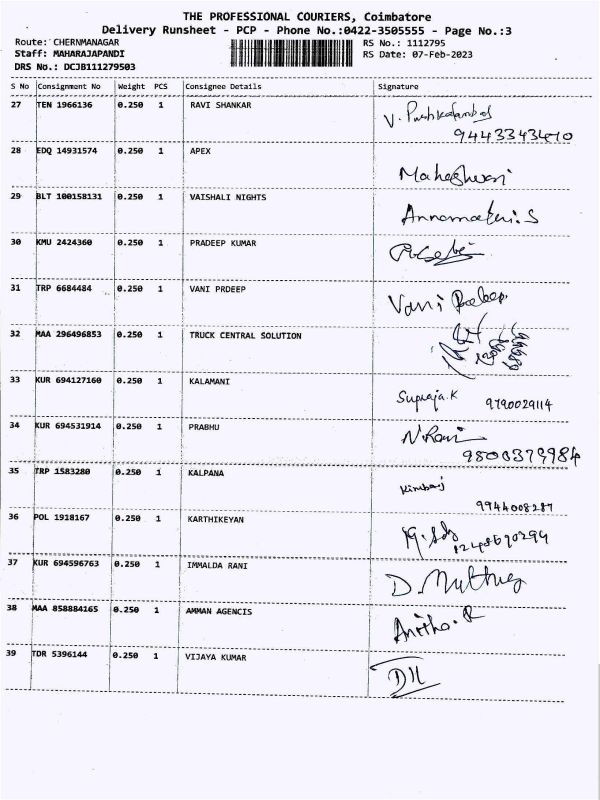 THE PROFESSIONAL COURIERS, Coimbatore
Delivery Runsheet - PCP - Phone No.:0422-3505555 - Page No.:3
Route: CHERNMANAGAR RS No.: 1112795
Staff: MAHARAJAPANDI RS Date: 07-Feb-2023
DRS No.: DCJB111279503
S No Consignment No Weight PCS Consignee Details Signature
27 TEN 1966136 0.250 1 RAVI SHANKAR
9443343410
28 EDQ 14931574 0.250 1 APEX Maheshwari
29 BLT 100158131 0.250 1 VAISHALI NIGHTS
30 KMU 2424360 0.250 1 PRADEEP KUMAR
31 TRP 6684484 0.250 1 VANI PRDEEP Vani Pradeep
32 MAA 296496853 0.250 1 TRUCK CENTRAL SOLUTION
33 KUR 694127160 0.250 1 KALAMANI Supraja.K 9790029114
34 KUR 694531914 0.250 1 PRABHU N.Ravi
9800379984
35 TRP 1583280 0.250 1 KALPANA
9944008287
36 POL 1918167 0.250 1 KARTHIKEYAN
37 KUR 694596763 0.250 1 IMMALDA RANI
38 MAA 858884165 0.250 1 AMMAN AGENCIS Anitha.R
39 TDR 5396144 0.250 1 VIJAYA KUMAR